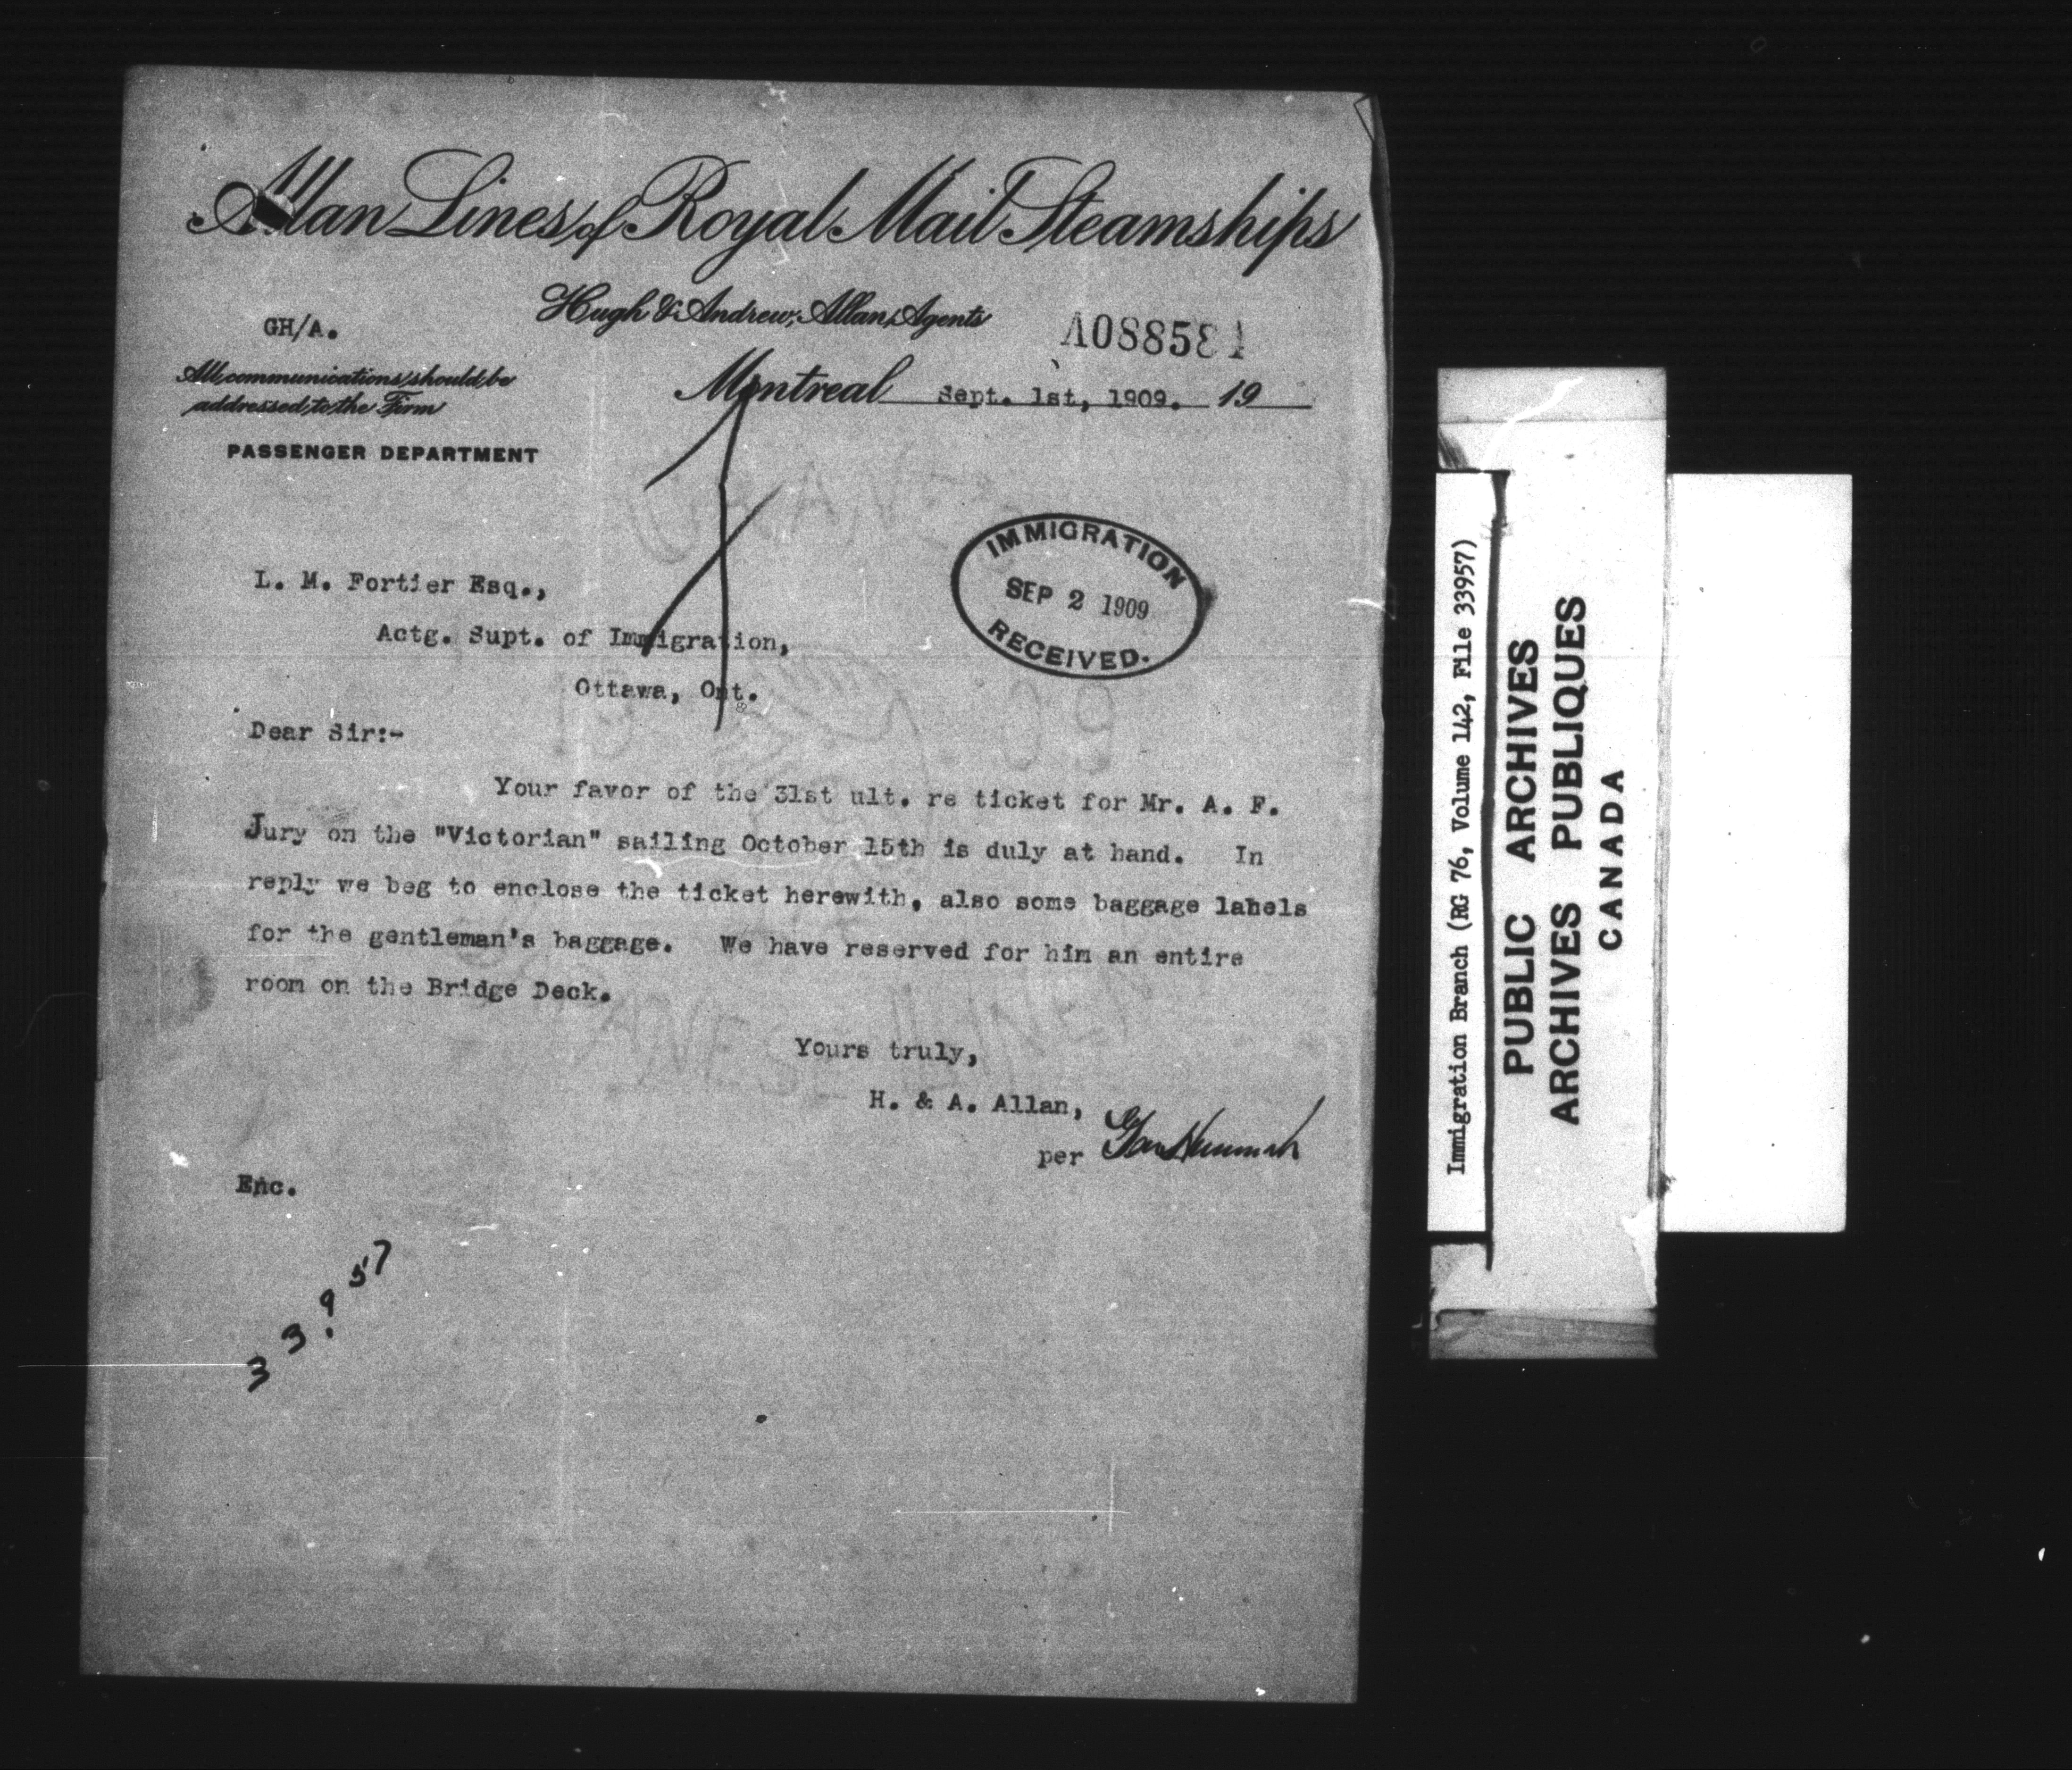 Allan Lines of Royal Mail Steamships
Hugh & Andrew Allan, Agents
GH/A.
A088581
All communications should be
addressed to the Firm
Montreal Sept. 1st, 1909. 19
PASSENGER DEPARTMENT
IMMIGRATION
SEP 2 1909
RECEIVED.
L. M. Fortier Esq.,
Actg. Supt. of Immigration,
Ottawa, Ont.
Dear Sir:-
Your favor of the 31st ult. re ticket for Mr. A. F.
Jury on the "Victorian" sailing October 15th is duly at hand. In
reply we beg to enclose the ticket herewith, also some baggage labels
for the gentleman's baggage. We have reserved for him an entire
room on the Bridge Deck.
Yours truly,
H. & A. Allan,
per
Enc.
33957
Immigration Branch (RG 76, Volume 142, File 33957)
PUBLIC ARCHIVES
ARCHIVES PUBLIQUES
CANADA